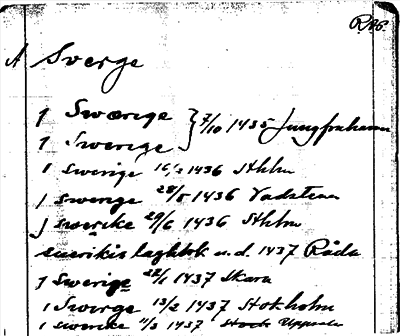 RAP.
A Sverge
1 Swærige } 7/10 1435 Jungfruhamn
1 Swerige
1 swerige 16/2 1436 Sthlm
1 swerige 28/5 1436 Vadstena
1 swerike 29/6 1436 Sthlm
suerikis laghbok u.d. 1437 Råda
1 Swerige 22/1 1437 Skara
1 Swerge 13/2 1437 Stokholm
1 swerike 11/3 1437 Stock Uppsala